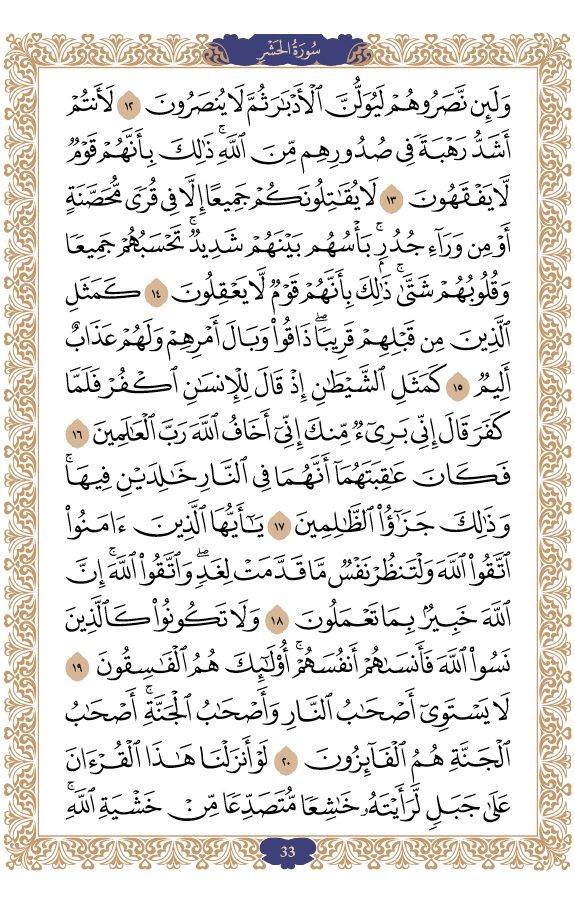 سُورَةُ الحَشْرِ
وَلَئِن نَّصَرُوهُمْ لَيُوَلُّنَّ ٱلْأَدْبَٰرَ ثُمَّ لَا يُنصَرُونَ ١٢ لَأَنتُمْ
أَشَدُّ رَهْبَةً فِى صُدُورِهِم مِّنَ ٱللَّهِۚ ذَٰلِكَ بِأَنَّهُمْ قَوْمٌ
لَّا يَفْقَهُونَ ١٣ لَا يُقَٰتِلُونَكُمْ جَمِيعًا إِلَّا فِى قُرًى مُّحَصَّنَةٍ
أَوْ مِن وَرَآءِ جُدُرٍۚ بَأْسُهُم بَيْنَهُمْ شَدِيدٌۚ تَحْسَبُهُمْ جَمِيعًا
وَقُلُوبُهُمْ شَتَّىٰۚ ذَٰلِكَ بِأَنَّهُمْ قَوْمٌ لَّا يَعْقِلُونَ ١٤ كَمَثَلِ
ٱلَّذِينَ مِن قَبْلِهِمْ قَرِيبًاۖ ذَاقُوا۟ وَبَالَ أَمْرِهِمْ وَلَهُمْ عَذَابٌ
أَلِيمٌ ١٥ كَمَثَلِ ٱلشَّيْطَٰنِ إِذْ قَالَ لِلْإِنسَٰنِ ٱكْفُرْ فَلَمَّا
كَفَرَ قَالَ إِنِّى بَرِىٓءٌ مِّنكَ إِنِّىٓ أَخَافُ ٱللَّهَ رَبَّ ٱلْعَٰلَمِينَ ١٦
فَكَانَ عَٰقِبَتَهُمَآ أَنَّهُمَا فِى ٱلنَّارِ خَٰلِدَيْنِ فِيهَاۚ
وَذَٰلِكَ جَزَٰٓؤُا۟ ٱلظَّٰلِمِينَ ١٧ يَٰٓأَيُّهَا ٱلَّذِينَ ءَامَنُوا۟
ٱتَّقُوا۟ ٱللَّهَ وَلْتَنظُرْ نَفْسٌ مَّا قَدَّمَتْ لِغَدٍۖ وَٱتَّقُوا۟ ٱللَّهَۚ إِنَّ
ٱللَّهَ خَبِيرٌۢ بِمَا تَعْمَلُونَ ١٨ وَلَا تَكُونُوا۟ كَٱلَّذِينَ
نَسُوا۟ ٱللَّهَ فَأَنسَىٰهُمْ أَنفُسَهُمْۚ أُو۟لَٰٓئِكَ هُمُ ٱلْفَٰسِقُونَ ١٩
لَا يَسْتَوِىٓ أَصْحَٰبُ ٱلنَّارِ وَأَصْحَٰبُ ٱلْجَنَّةِۚ أَصْحَٰبُ
ٱلْجَنَّةِ هُمُ ٱلْفَآئِزُونَ ٢٠ لَوْ أَنزَلْنَا هَٰذَا ٱلْقُرْءَانَ
عَلَىٰ جَبَلٍ لَّرَأَيْتَهُۥ خَٰشِعًا مُّتَصَدِّعًا مِّنْ خَشْيَةِ ٱللَّهِۚ
33